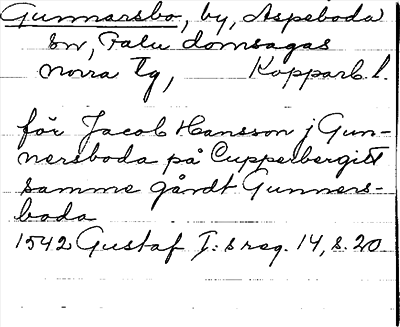 Gunnarsbo, by, Aspeboda
sn, Falu domsagas
norra tg, Kopparb. l.
för Jacob Hansson j Gun-
nersboda på Cupperbergitt
samme gårdt Gunners-
boda
1542 Gustaf I:s reg. 14, s. 20